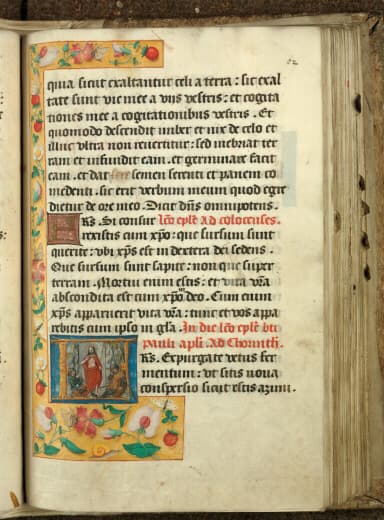 62
quia sicut exaltantur celi a terra : sic exal
tate sunt vie mee a vijs vestris : et cogita
tiones mee a cogitationibus vestris . Et
quomodo descendit imber et nix de celo et
illuc vltra non reuertitur : sed inebriat ter
ram et infundit eam . et germinare facit
eam . et dat semen serenti et panem co
medenti . sic erit verbum meum quod egre
dietur de ore meo . Dicit dn̄s omnipotens .
Frs. Si consur lc̄o epl̄e Ad colocenses .
rexistis cum xp̄o : que sursum sunt
querite : vbi xp̄s est in dextera dei sedens .
Que sursum sunt sapite : non que super
terram . Mortui enim estis : et vita vr̄a
abscondita est cum xp̄o in deo . Cum enim
xp̄s apparuerit vita vr̄a : tunc et vos appa
rebitis cum ipso in gl̄a . In die lc̄o epl̄e bti
pauli apl̄i . Ad Chorinth .
Frs . Expurgate vetus fer
mentum : vt sitis noua
conspersio sicut estis azimi .